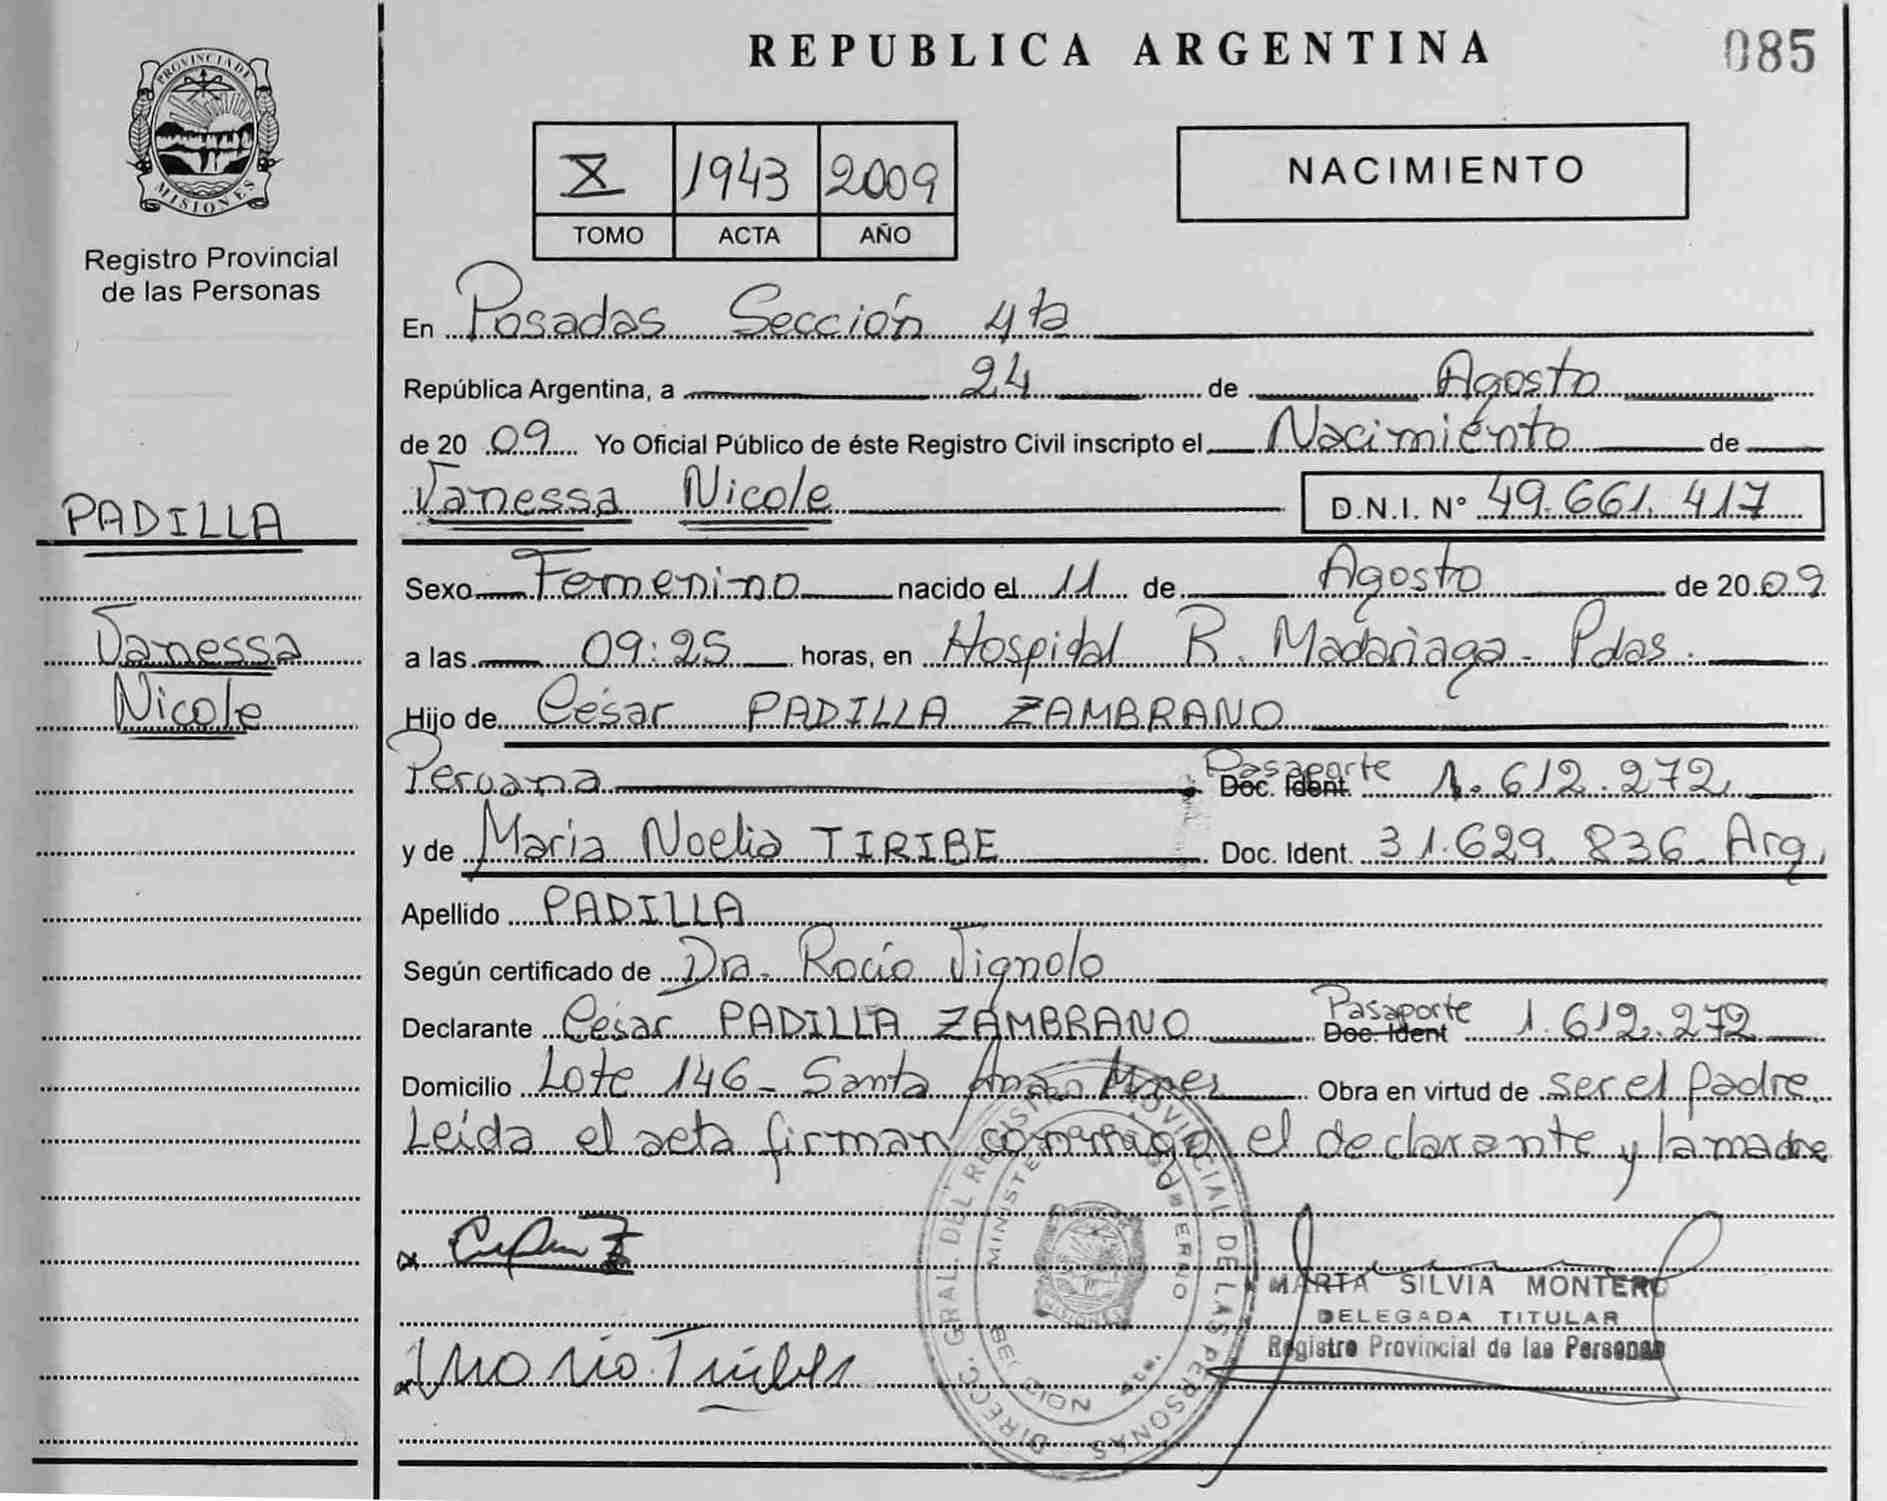 REPUBLICA ARGENTINA
085
PROVINCIA DE
MISIONES
Registro Provincial
de las Personas
X 1943 2009
TOMO ACTA AÑO
NACIMIENTO
En Posadas Sección 4ta
República Argentina, a 24 de Agosto
de 2009 Yo Oficial Público de éste Registro Civil inscripto el Nacimiento de
Vanessa Nicole D.N.I. N° 49.661.417
PADILLA
Vanessa
Nicole
Sexo Femenino nacido el 11 de Agosto de 2009
a las 09:25 horas, en Hospital R. Madariaga - Pdas.
Hijo de César PADILLA ZAMBRANO
Peruana Pasaporte Doc. Ident. 1.612.272
y de Maria Noelia TIRIBE Doc. Ident. 31.629.836 Arg.
Apellido PADILLA
Según certificado de Dra. Rocío Vignolo
Declarante César PADILLA ZAMBRANO Pasaporte Doc. Ident 1.612.272
Domicilio Lote 146 - Santa Ana Mnes Obra en virtud de ser el padre.
Leída el acta firman conmigo el declarante y la madre
DIRECC. GRAL. DEL REGISTRO PROVINCIAL DE LAS PERSONAS
MINISTE GOBIERNO
MARTA SILVIA MONTERO
DELEGADA TITULAR
Registro Provincial de las Personas